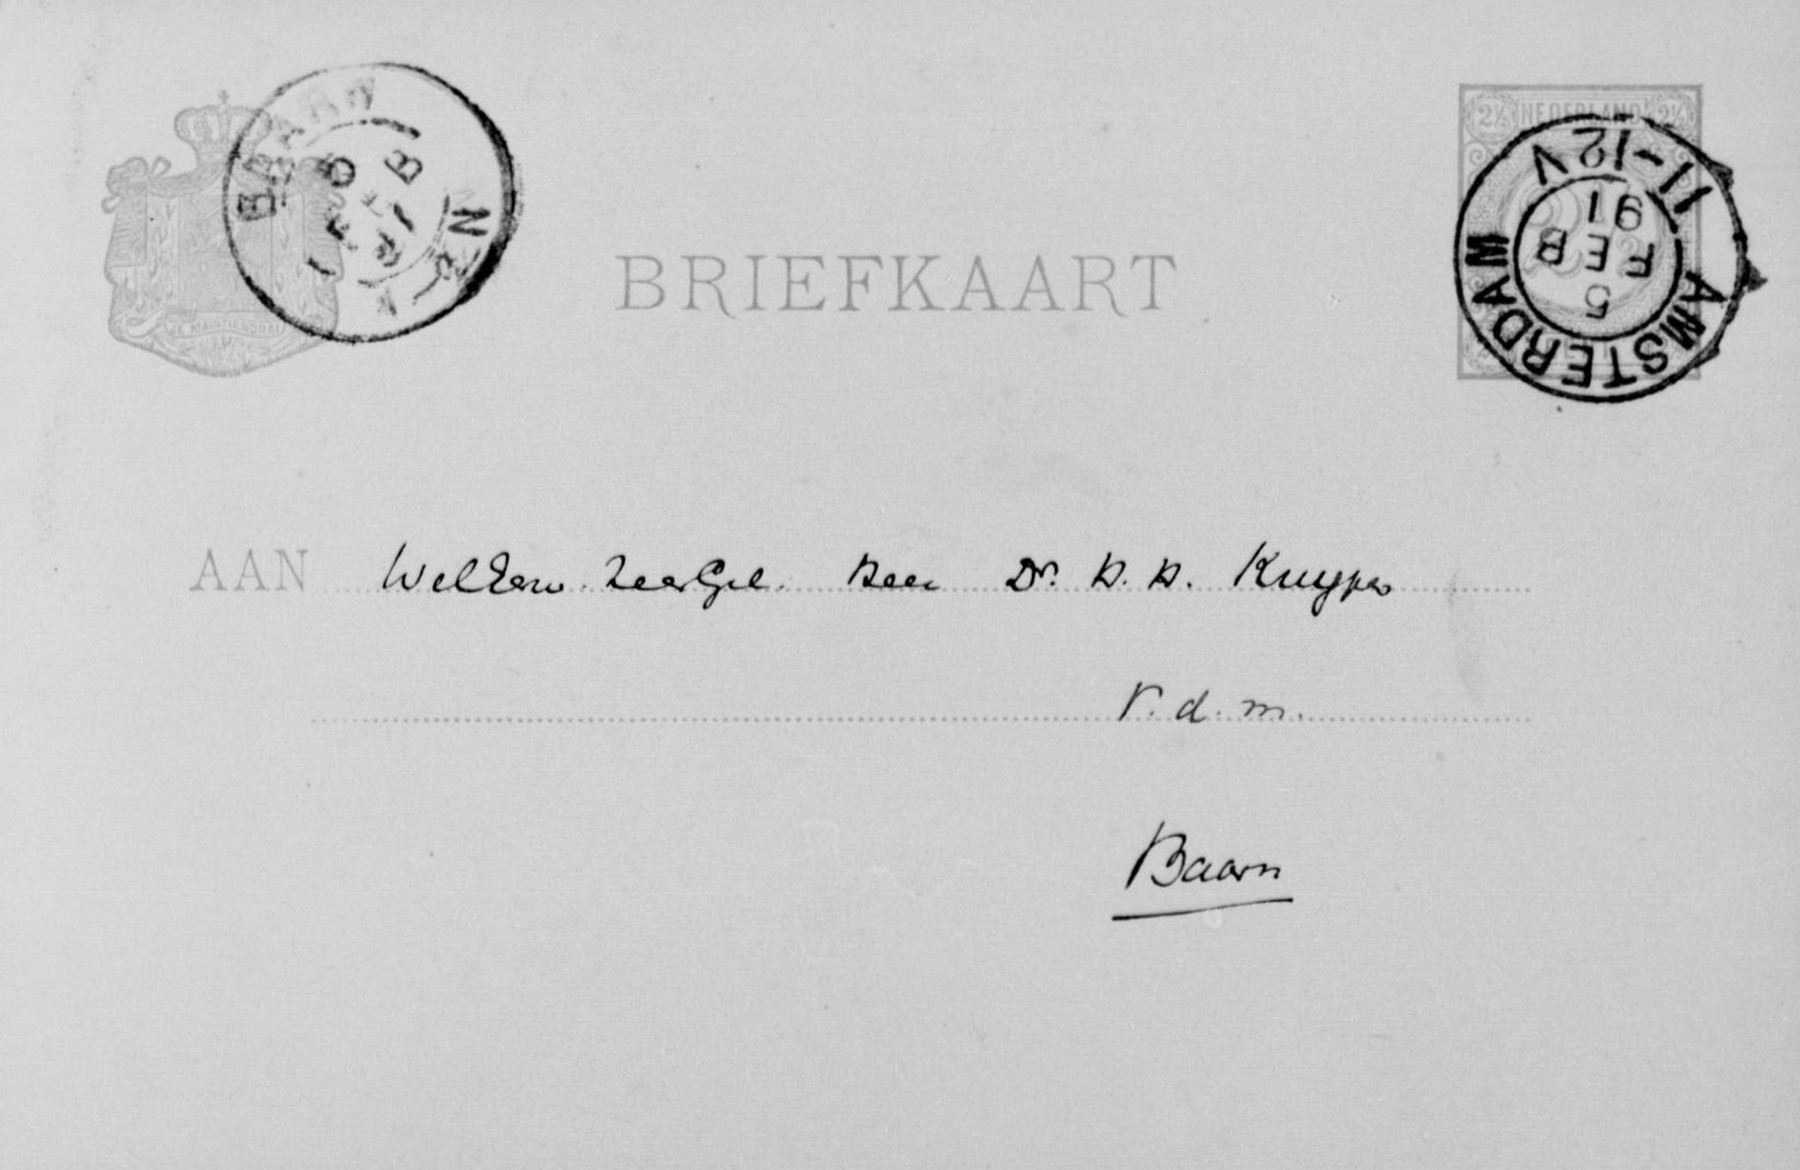 BAARN
5
FEB
91
N
JE MAINTIENDRAI
BRIEFKAART
2½ NEDERLAND 2½
AMSTERDAM
11-12V
5
FEB
91
AAN WelEerw. ZeerGel. Heer Dr. H. H. Kuyper
V. d. m.
Baarn